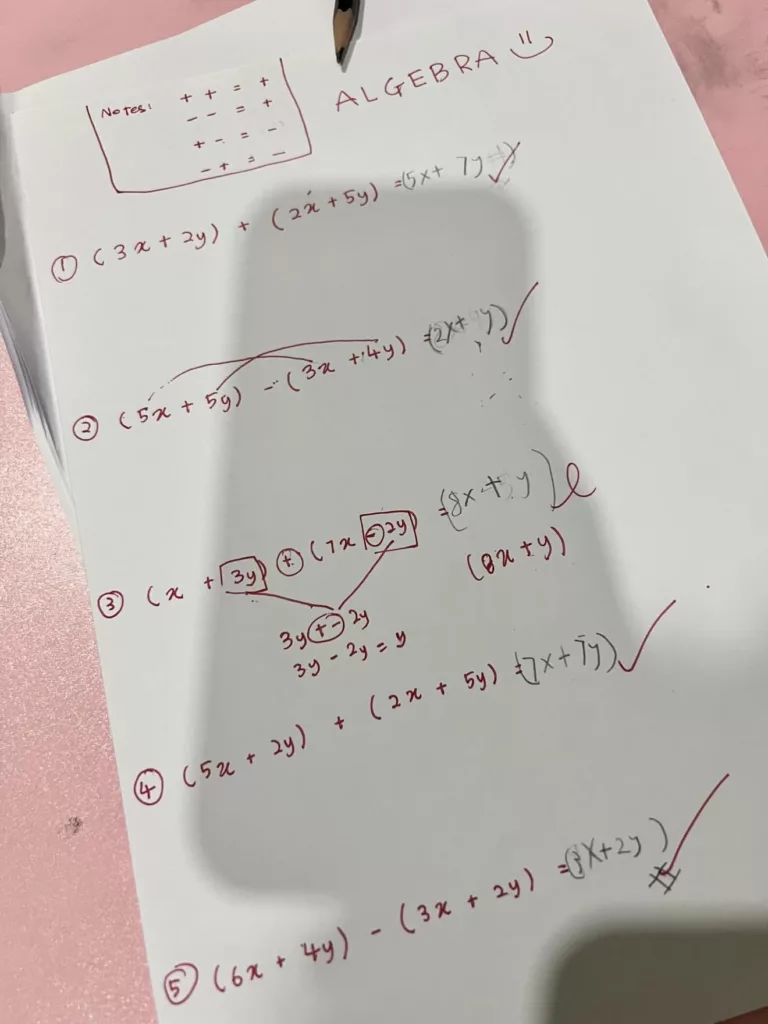 Notes: + + = +
- - = +
+ - = -
- + = -
ALGEBRA
① (3x + 2y) + (2x + 5y) = (5x + 7y)
② (5x + 5y) - (3x + 4y) = (2x + y)
③ (x + 3y) + (7x - 2y) = (8x + y)
(8x + y)
3y + - 2y
3y - 2y = y
④ (5x + 2y) + (2x + 5y) = (7x + 7y)
⑤ (6x + 4y) - (3x + 2y) = (3x + 2y)